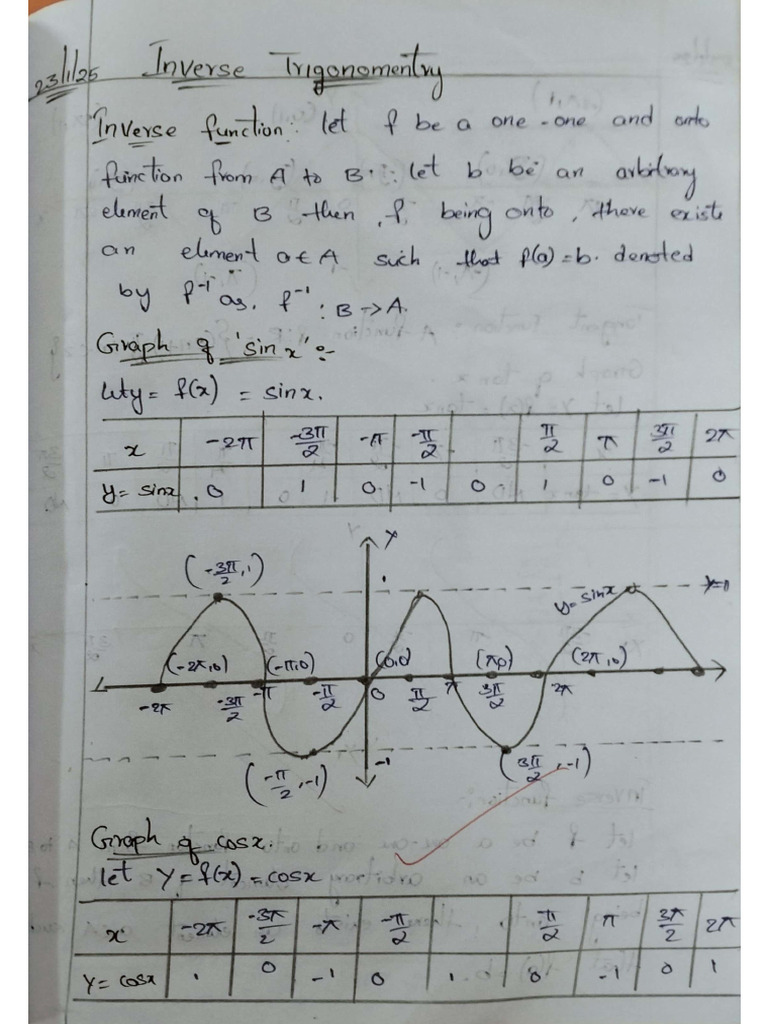 23/1/25 Inverse Trigonomentry
Inverse function: let f be a one-one and onto
function from A to B. let b be an arbitrary
element of B then f being onto, there exists
an element a∈A such that f(a)=b. denoted
by f⁻¹ as. f⁻¹ : B→A.
Graph of 'sinx' :-
let y = f(x) = sinx.
x -2π -3π/2 -π -π/2 π/2 π 3π/2 2π
y = sinx 0 1 0 -1 0 1 0 -1 0
Y
(-3π/2, 1) 1 y=sinx
(-2π,0) (-π,0) (0,0) (π,0) (2π,0)
-2π -3π/2 -π -π/2 0 π/2 π 3π/2 2π
(-π/2, -1) -1 (3π/2, -1)
Graph of cosx.
let Y = f(x) = cosx
x -2π -3π/2 -π -π/2 π/2 π 3π/2 2π
Y = cosx 1 0 -1 0 1 0 -1 0 1